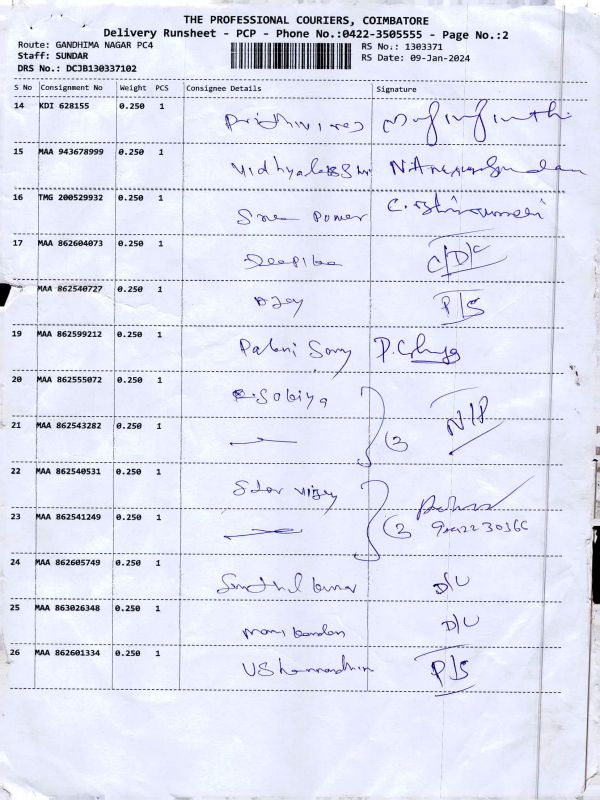 THE PROFESSIONAL COURIERS, COIMBATORE
Delivery Runsheet - PCP - Phone No.:0422-3505555 - Page No.:2
Route: GANDHIMA NAGAR PC4
RS No.: 1303371
Staff: SUNDAR
RS Date: 09-Jan-2024
DRS No.: DCJB130337102
S No Consignment No Weight PCS Consignee Details Signature
14 KDI 628155 0.250 1
15 MAA 943678999 0.250 1
16 TMG 200529932 0.250 1 Power
17 MAA 862604073 0.250 1 Deepika C/D/C
MAA 862540727 0.250 1 Ajay P/S
19 MAA 862599212 0.250 1 Palani Samy
20 MAA 862555072 0.250 1 Sobiya
21 MAA 862543282 0.250 1 N/P
22 MAA 862540531 0.250 1 Star Vijay
23 MAA 862541249 0.250 1
24 MAA 862605749 0.250 1 Senthil kumar D/L
25 MAA 863026348 0.250 1 Mani kandan D/L
26 MAA 862601334 0.250 1 P/S